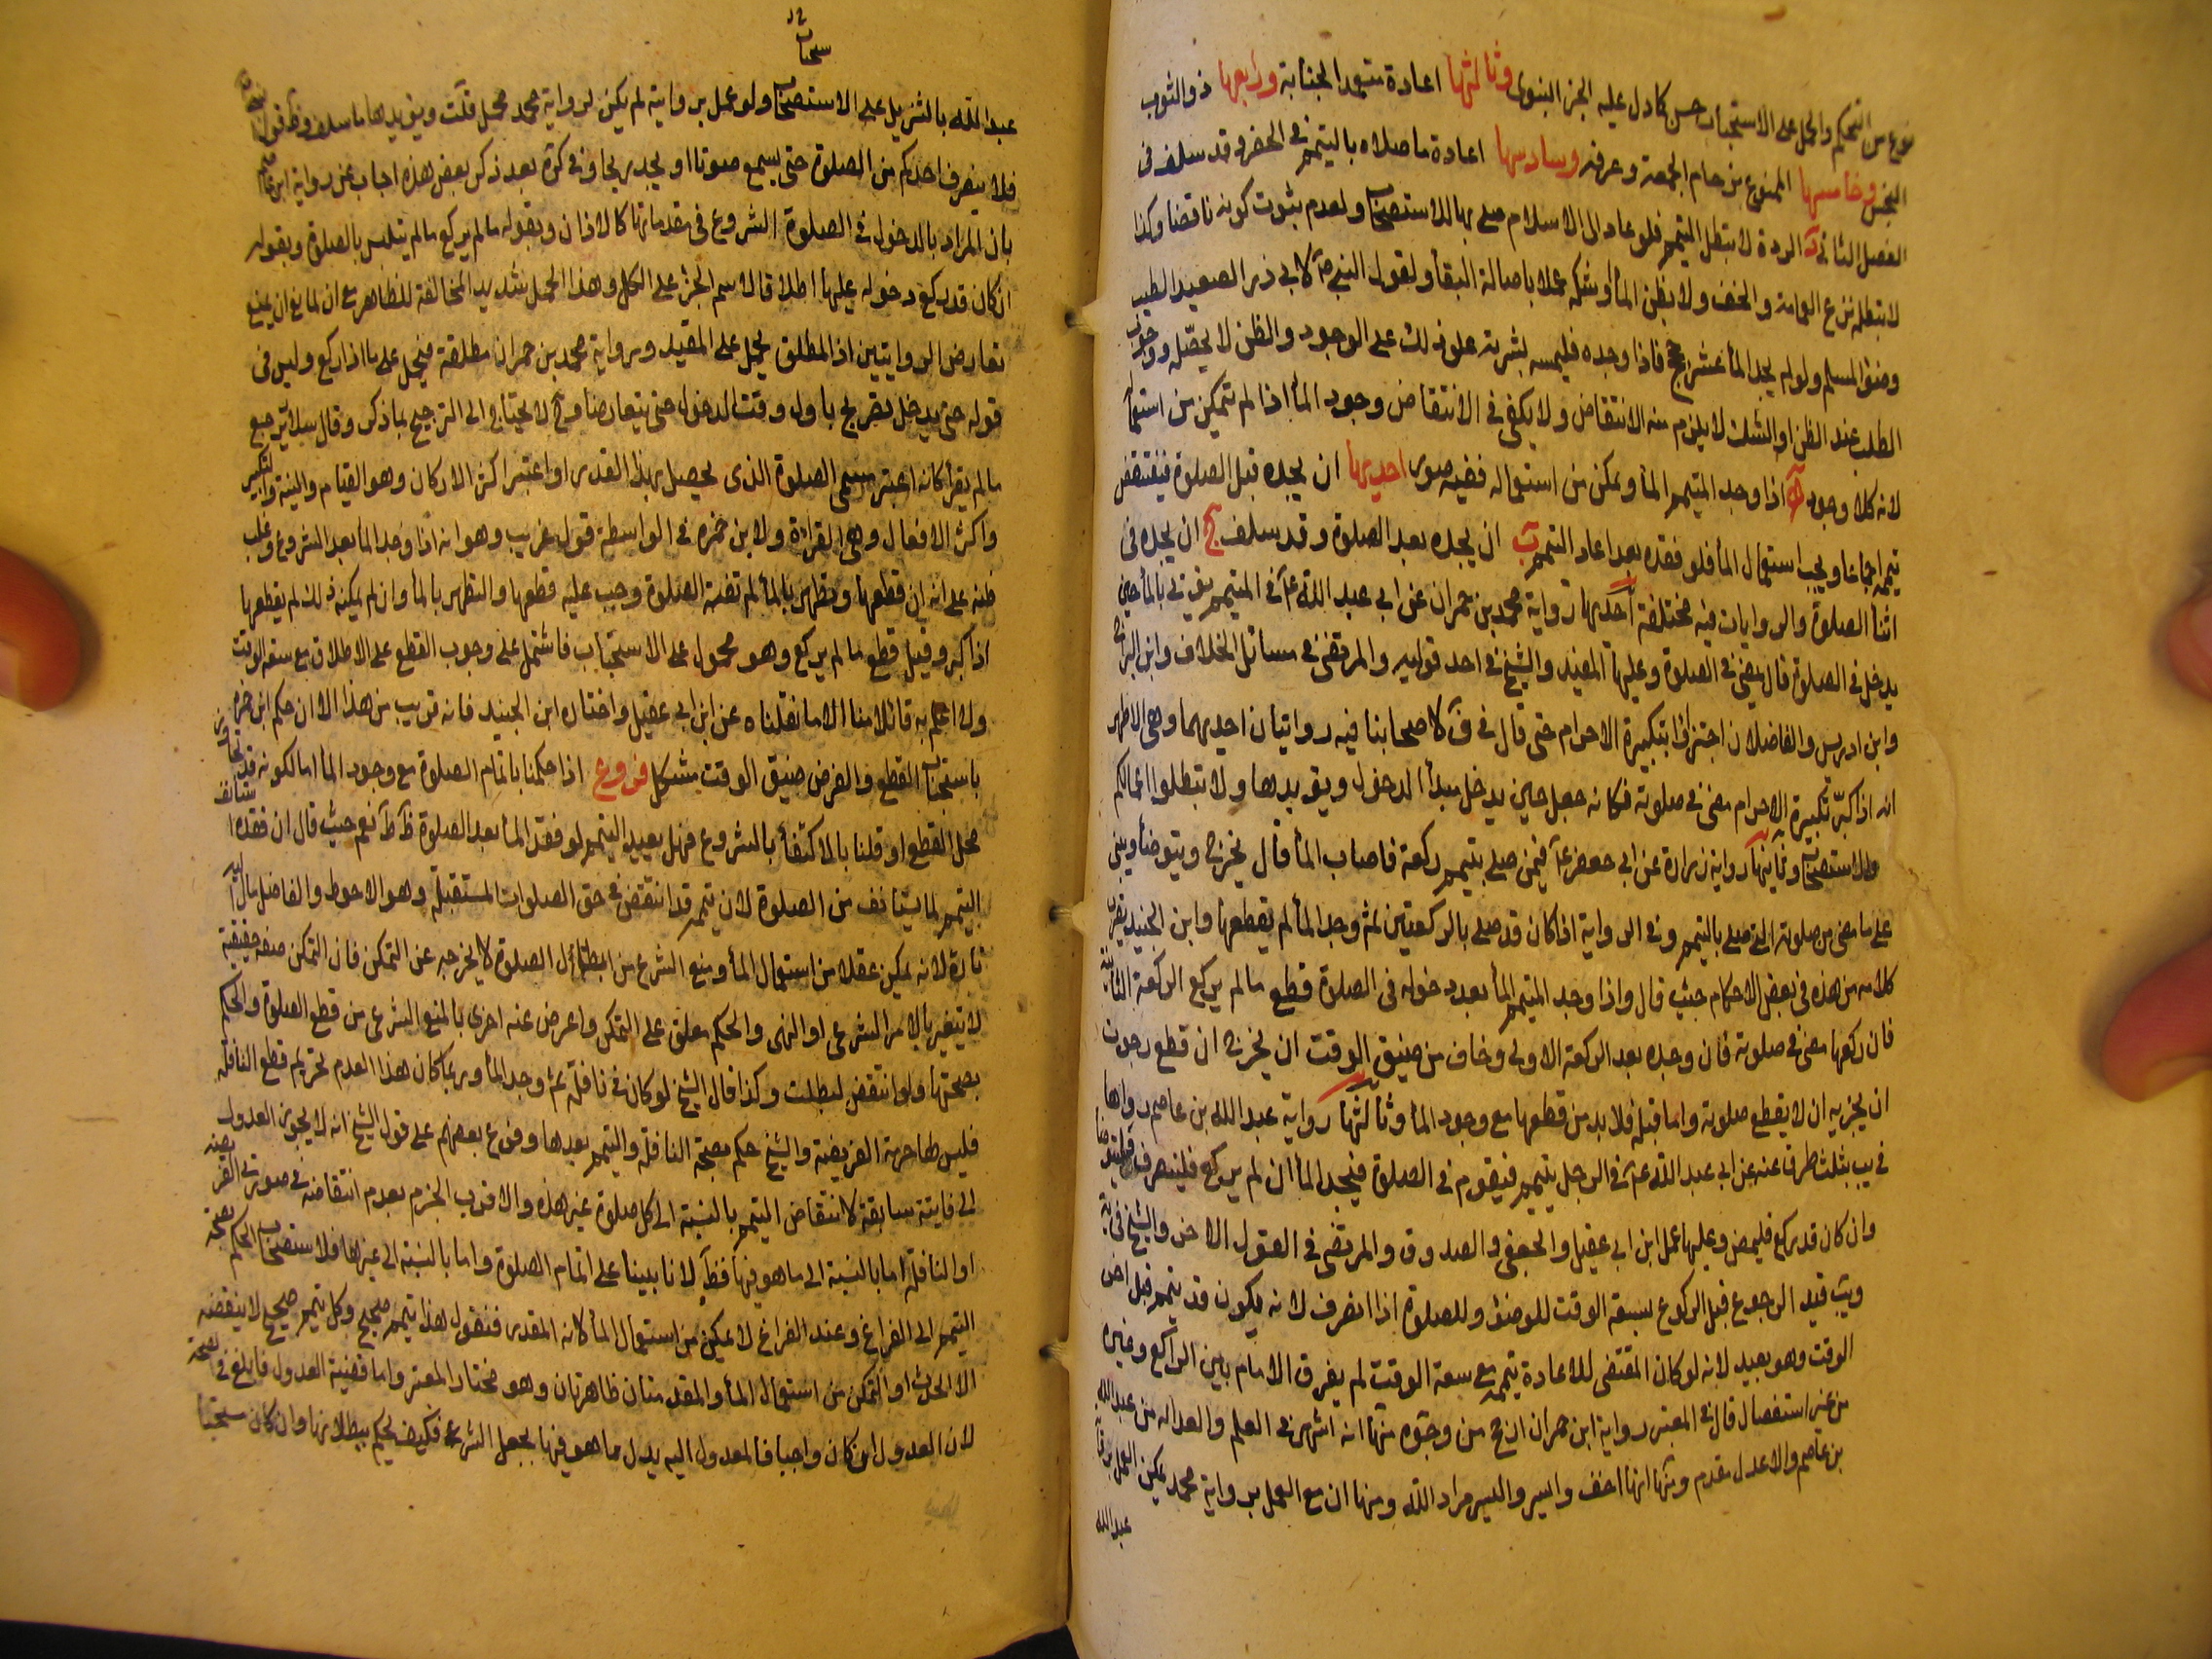 نوع من التحكم والحمل على الاستحباب حسن كما دل عليه الخبر النبوى وثالثها اعادة متعمد الجنابة ورابعها ذو الثوب
النجس وخامسها الممنوع بزحام الجمعة وعرفة وسادسها اعادة ما صلاه بالتيمم فى الحضر وقد سلف فى
الفصل الثانى الردة لا تبطل التيمم فلو عاد الى الاسلام صلى بها للاستصحاب ولعدم ثبوت كونه ناقضا وكذا
لا يبطله نزع العمامة والخف ولا بظن الماء وشكه عملا باصالة البقاء ولقول النبى ص لابى ذر الصعيد الطيب
وضوء المسلم ولو لم يجد الماء عشر حجج فاذا وجده فليمسه بشرته علق ذلك على الوجود والظن لا يحصله ووجوب
الطلب عند الظن او الشك لا يلزم منه الانتقاض ولا يكفى فى الانتقاض وجود الماء اذا لم يتمكن من استعماله
لانه كلا وجود اذا وجد المتيمم الماء وتمكن من استعماله ففيه صور احديها ان يجده قبل الصلوة فينتقض
تيممه اجماعا ويجب استعمال الماء فلو فقده بعد اعاد التيمم ب ان يجده بعد الصلوة وقد سلف ج ان يجده فى
اثناء الصلوة والروايات فيه مختلفة احديها رواية محمد بن حمران عن ابى عبد الله ع فى المتيمم يؤتى بالماء حين
يدخل فى الصلوة قال يمضى فى الصلوة وعليها المفيد والشيخ فى احد قوليه والمرتضى فى مسائل الخلاف وابن البراج
وابن ادريس والفاضلان اجتزاؤا بتكبيرة الاحرام حتى قال فى ف لاصحابنا فيه روايتان احديهما وهى الاظهر
انه اذا كبر تكبيرة الاحرام مضى فى صلوته فكانه جعل حين يدخل مبدأ الدخول ويؤيدها ولا تبطلوا اعمالكم
وللاستصحاب وثانيها رواية زرارة عن ابى جعفر ع فيمن صلى بتيمم ركعة فاصاب الماء قال يخرج ويتوضأ ويبنى
على ما مضى من صلوته التى صلى بالتيمم وفى الرواية اذا كان قد صلى بالركعتين ثم وجد الماء لم يقطعها وابن الجنيد يقرب
كلامه من هذه فى بعض الاحكام حيث قال واذا وجد المتيمم الماء بعد دخوله فى الصلوة قطع ما لم يركع الركعة الثانية
فان ركعها مضى فى صلوته فان وجده بعد الركعة الاولى وخاف من ضيق الوقت ان يخرج ان قطع رجوت
ان يجزيه ان لا يقطع صلوته واما قبله فلا بد من قطعها مع وجود الماء وثالثها رواية عبد الله بن عاصم رواها
فى يب بثلث طرق عنه عن ابى عبد الله ع فى الرجل يتيمم فيقوم فى الصلوة فيجد الماء ان لم يركع فلينصرف فليتوضا
وان كان قد ركع فليمض وعليها عمل ابن ابى عقيل والجعفى والصدوق والمرتضى فى القول الاخر والشيخ فى ية
ويب قيد الرجوع قبل الركوع بسعة الوقت للوضوء وللصلوة اذا انصرف لانه يكون قد تيمم قبل اخر
الوقت وهو بعيد لانه لو كان المقتضى للاعادة تيممه مع سعة الوقت لم يفرق الامام بين الراكع وغيره
من غير استفصال قال فى المعتبر رواية ابن حمران ارجح من وجوه منها انه اشهر فى العلم والعدالة من عبد الله
بن عاصم والاعدل مقدم ومنها انها اخف وايسر واليسر مراد الله ومنها ان مع العمل برواية محمد يمكن العمل برواية
عبد الله
سحاب
عبد الله بالتنزيل على الاستحباب ولو عمل بروايته لم يكن لرواية محمد محمل قلت ويؤيدها ما سلف وظ قوله
فلا ينصرف احدكم من الصلوة حتى يسمع صوتا او يجد ريحا وفى كرة بعد ذكر بعض هذه اجاب عن رواية ابن عاصم
بان المراد بالدخول فى الصلوة الشروع فى مقدماتها كالاذان وبقوله ما لم يركع ما لم يتلبس بالصلوة وبقوله
ان كان قد ركع دخوله عليها اطلاقا لاسم الجزء على الكل وهذا الحمل شديد المخالفة للظاهر مع ان لمانع ان يمنع
تعارض الروايتين اذ المطلق يحمل على المقيد ورواية محمد بن حمران مطلقة فيحمل على ما اذا ركع وليس فى
قوله حتى يدخل تصريح باول وقت الدخول حتى يتعارضا وح لا يحتاج الى الترجيح بما ذكر وقال سلار يرجع
ما لم يقرأ كانه اعتبر مسمى الصلوة الذى يحصل بهذا القدر او اعتبر اكثر الاركان وهو القيام والنية والتكبير
واكثر الافعال وهى القراءة ولابن حمزه فى الواسطة قول غريب وهو انه اذا وجد الماء بعد الشروع وغلب
ظنه على انه ان قطعها وتطهر بالماء لم تفته الصلوة وجب عليه قطعها والتطهر بالماء وان لم يمكنه ذلك لم يقطعها
اذا كبر وقيل قطع ما لم يركع وهو محمول على الاستحباب فاشتمل على وجوب القطع على الاطلاق مع سعة الوقت
ولا اعلم به قائلا منا الا ما نقلناه عن ابن ابى عقيل واختاره ابن الجنيد فانه قريب من هذا الا ان حكم ابن حمزه
باستحباب القطع والفرض ضيق الوقت مشكل فروع اذا حكمنا باتمام الصلوة مع وجود الماء اما لكونه قد تجاوز
محل القطع او قلنا بالاكتفاء بالشروع فهل يعيد التيمم لو فقد الماء بعد الصلوة ظ ط نعم حيث قال ان فقده استانف
التيمم لما يستأنف من الصلوة لان تيممه قد انتقض فى حق الصلوات المستقبلة وهو الاحوط والفاضل مال اليه
تارة لانه تمكن عقلا من استعمال الماء ومنع الشرع من ابطال الصلوة لا يخرجه عن التمكن فان التمكن صفة حقيقية
لا تتغير بالامر الشرعى او النهى والحكم معلق على التمكن واعرض عنه اخرى بالمنع الشرعى من قطع الصلوة والحكم
بصحتها ولو انتقض لبطلت وكذا قال الشيخ لو كان فى نافلة ثم وجد الماء وربما كان هذا العدم تحريم قطع النافلة
فليس لها حرمة الفريضة والشيخ حكم بصحة النافلة والتيمم بعدها وفرع بعضهم على قول الشيخ انه لا يجوز العدول
الى فايتة سابقة لانتقاض التيمم بالنسبة الى كل صلوة غير هذه والاقرب الجزم بعدم انتقاضه فى صورتى الفريضة
او النافلة اما بالنسبة الى ما هو فيها فظ لانا بينا على اتمام الصلوة واما بالنسبة الى غيرها فلاستصحاب الحكم بصحة
التيمم الى الفراغ وعند الفراغ لا يمكن من استعمال الماء لانه المقدر فنقول هذا تيمم صحيح وكل تيمم صحيح لا ينقضه
الا الحدث او التمكن من استعمال الماء والمقدمتان ظاهرتان وهو مختار المعتبر واما قضية العدول فابلغ فى الصحة
لان العدول ان كان واجبا فالمعدول اليه بدل ما هو فيها بجعل الشرع فكيف يحكم ببطلانها وان كان مستحبا